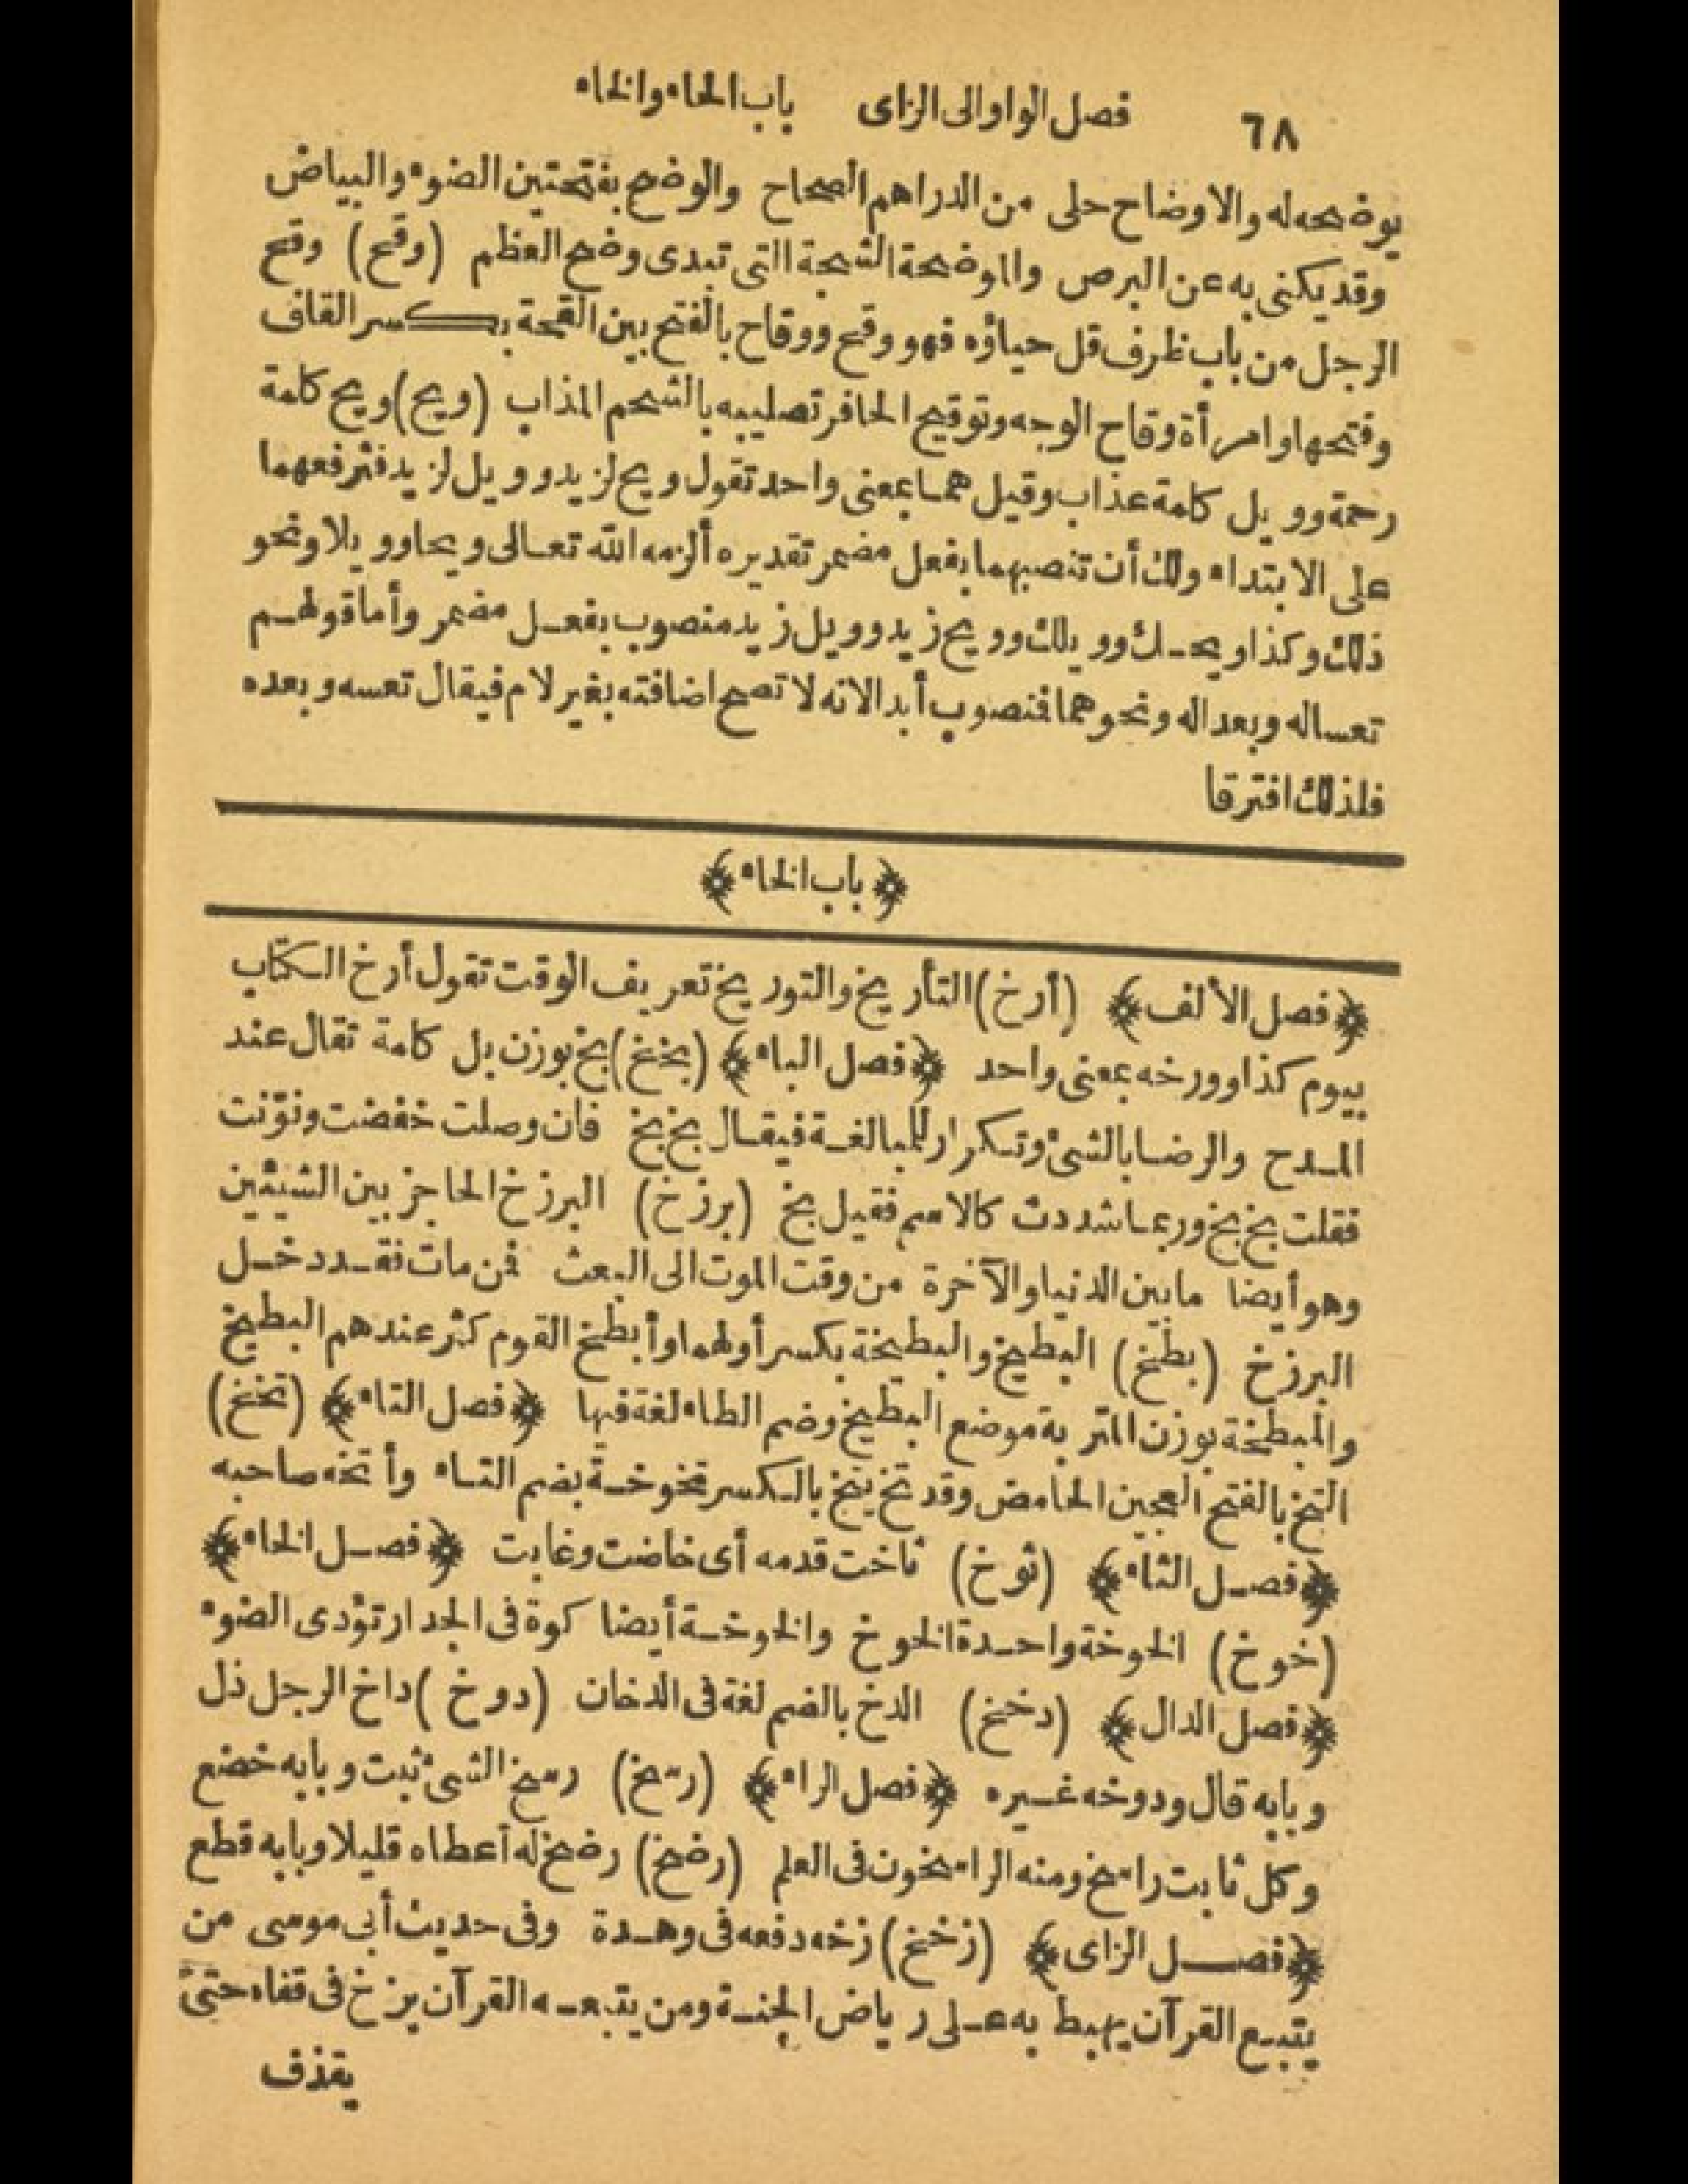 ٦٨ فصل الواو الى الزاى باب الحاء والخاء
يوضحه له والاوضاح حلى من الدراهم الصحاح والوضح بفتحتين الضوء والبياض
وقد يكنى به عن البرص والموضحة الشجة التى تبدى وضح العظم (وقح) وقح
الرجل من باب ظرف قل حياؤه فهو وقح ووقاح بالفتح بين القحة بكسر القاف
وفتحها وامرأة وقاح الوجه وتوقيح الحافر تصليبه بالشحم المذاب (ويح) ويح كلمة
رحمة وويل كلمة عذاب وقيل هما بمعنى واحد تقول ويح لزيد وويل لزيد فترفعهما
على الابتداء ولك أن تنصبهما بفعل مضمر تقديره ألزمه الله تعالى ويحا وويلا ونحو
ذلك وكذا ويحك وويلك وويح زيد وويل زيد منصوب بفعل مضمر وأما قولهم
تعسا له وبعدا له ونحوهما فنصوب أبدا لانه لا تصح اضافته بغير لام فيقال تعسه وبعده
فلذلك افترقا
﴿باب الخاء﴾
﴿فصل الألف﴾ (أرخ) التأريخ والتوريخ تعريف الوقت تقول أرخ الكتاب
بيوم كذا وورخه بمعنى واحد ﴿فصل الباء﴾ (بخخ) بخ بوزن بل كلمة تقال عند
المدح والرضا بالشئ وتكرار للمبالغة فيقال بخ بخ فان وصلت خفضت ونوّنت
فقلت بخ بخ وربما شددت كالاسم فقيل بخ (برزخ) البرزخ الحاجز بين الشيئين
وهو أيضا ما بين الدنيا والآخرة من وقت الموت الى البعث فن مات فقد دخل
البرزخ (بطخ) البطيخ والبطيخة بكسر أولهما وأبطخ القوم كثر عندهم البطيخ
والمبطخة بوزن المتربة موضع البطيخ وضم الطاء لغة فيها ﴿فصل التاء﴾ (تخخ)
التخ بالفتح العجين الحامض وقد تخ يتخ بالكسر تخوخة بضم التاء وأتخه صاحبه
﴿فصل الثاء﴾ (ثوخ) ثاخت قدمه أى خاضت وغابت ﴿فصل الخاء﴾
(خوخ) الخوخة واحدة الخوخ والخوخة أيضا كوة فى الجدار تؤدى الضوء
﴿فصل الدال﴾ (دخخ) الدخ بالضم لغة فى الدخان (دوخ) داخ الرجل ذل
وبابه قال ودوخه غيره ﴿فصل الراء﴾ (رسخ) رسخ الشئ ثبت وبابه خضع
وكل ثابت راسخ ومنه الراسخون فى العلم (رضخ) رضخ له أعطاه قليلا وبابه قطع
﴿فصل الزاى﴾ (زخخ) زخه دفعه فى وهدة وفى حديث أبى موسى من
يتبع القرآن يهبط به على رياض الجنة ومن يتبعه القرآن يزخ فى قفاه حتى
يقذف